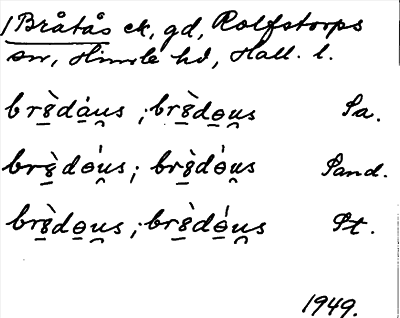 1 Bråtås ek, gd, Rolfstorps
sn, Himle hd, Hall. l.
br&̀dȧu̯s ; br&̀do̱u̯s Sa.
br&̀dɵ́u̯s ; br&̀dɵ́u̯s Sand.
br&̀dɵu̯s ; br&̀dɵ́u̯s St.
1949.